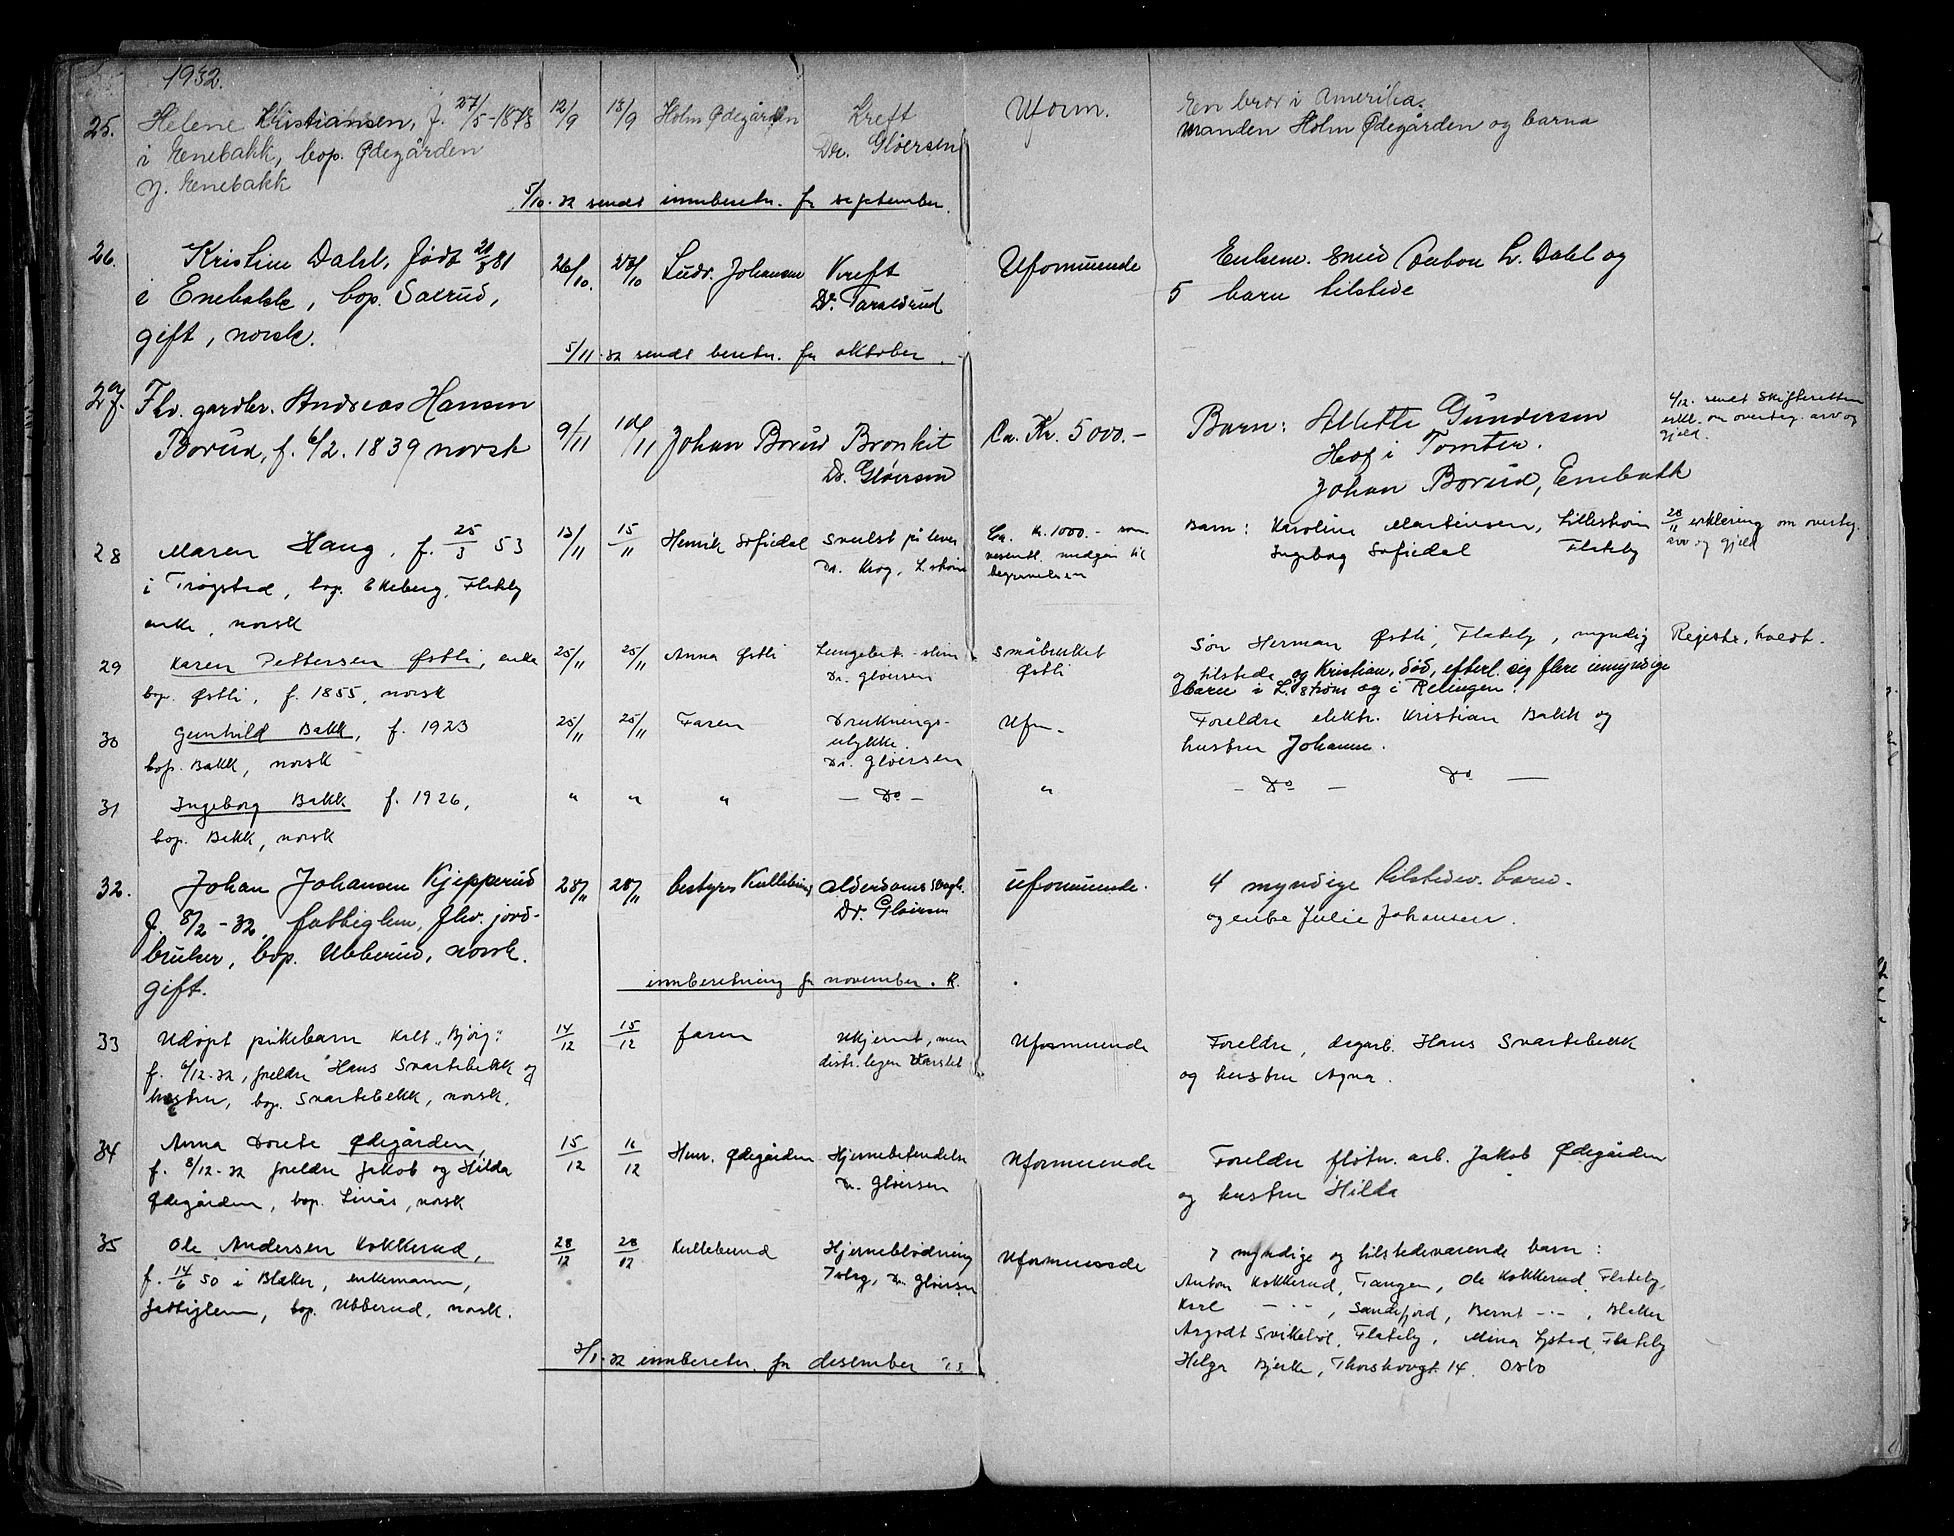 1932.
25. Helene Kristiansen, f. 27/5-1878 12/9 13/9 Holm Ødegården Kreft Uform. En bror i Amerika.
i Enebakk, bop. Ødegården Dr. Gløersen Manden Holm Ødegården og barna
y. Enebakk
5/10.32 sendt innberetn. for september.
26. Kristine Dahl, født 81 26/10. 27/10 Ludv. Johansen Kreft Uformuende Enkem. smed Anton L. Dahl og
i Enebakk, bop. Sætrud, Dr. Taraldrud 5 barn tilstede
gift, norsk.
5/11.32 sendt beretn. for oktober.
27. Flv. gardbr. Andreas Hansen 9/11 10/11 Johan Borud Bronkit Ca. Kr. 5000.- Barn: Alette Gundersen 6/12. sendt Skifteretten
Borud, f. 6/2. 1839 norsk Dr. Gløersen Haf i Tomter. erkl. om overtag. arv og
Johan Borud, Enebakk gjeld.
28 Maren Haug, f. 25/3 53 13/11 15/11 Henrik Sofiedal Svulst på lever Ca. kr. 1000.- som Barn: Karoline Martinsen, Lillestrøm 28/11 erklæring om overtag.
i Trøgstad, bop. Ekeberg, Flateby Dr. Krog, L.strøm vesentl. medgår til Ingeborg Sofiedal Flateby arv og gjeld
enke, norsk begravelsen
29 Karen Pettersen Østli, enke 25/11 25/11 Anna Østli Lungebet. - slim Småbruket Søn Herman Østli, Flateby, myndig Registr. holdt.
bop. Østli, f. 1855, norsk Dr. Gløersen Østli og tilstede og Kristian, død, efterl. seg flere umyndige
barn i L.strøm og i Relingen.
30 Gunhild Bakk, f. 1923 25/11 25/11 Faren Druknings- Ufm. Foreldre elektr. Kristian Bakk og
bop. Bakk, norsk ulykke. hustru Johanne.
Dr. Gløersen
31 Ingeborg Bakk f. 1926, " " " - Do - " - Do - Do -
bop. Bakk, norsk
32. Johan Johansen Kjepperud 28/11 28/11 bestyrer Kullebund alderdomssvagh. uformuende. 4 myndige tilstedev. barn.
f. 8/2 - 32, fattiglem, flv. jord- Dr. Gløersen og enke Julie Johansen.
bruker, bop. Ubberud, norsk.
gift.
innberetning for november. K.
33 Udøpt pikebarn kalt "Bjørg" 14/12 15/12 faren Ukjennt, men Uformuende Foreldre, dagarb. Hans Svartebekk
f. 6/12-32, foreldre Hans Svartebekk og distr. legen varslet og hustru Agna.
hustru, bop. Svartebekk, norsk.
34 Anna Dorete Ødegården, 15/12 16/12 Henr. Ødegården Hjernebetendelse Uformuende Foreldre fløtn. arb. Jakob Ødegården
f. 8/12-32 foreldre Jakob og Hilda Dr. Gløersen og hustru Hilda
Ødegården, bop. Linås, norsk
35 Ole Andersen Kokkerud, 28/12 28/12 Kullebund Hjerneblødning Uformuende 7 myndige og tilstedeværende barn:
f. 14/6 50 i Blaker, enkemann, Dr. Gløersen Anton Kokkerud, Tangen, Ole Kokkerud, Flateby,
fattiglem, bop. Ubberud, norsk. Karl - " -, Sandefjord, Bernt - " -, Blaker
Asgodt Svikebøl, Flateby, Mina Lysted, Flateby
3/1-32 innberetn. for desember Helga Bjerke, Thorshovgt. 14, Oslo